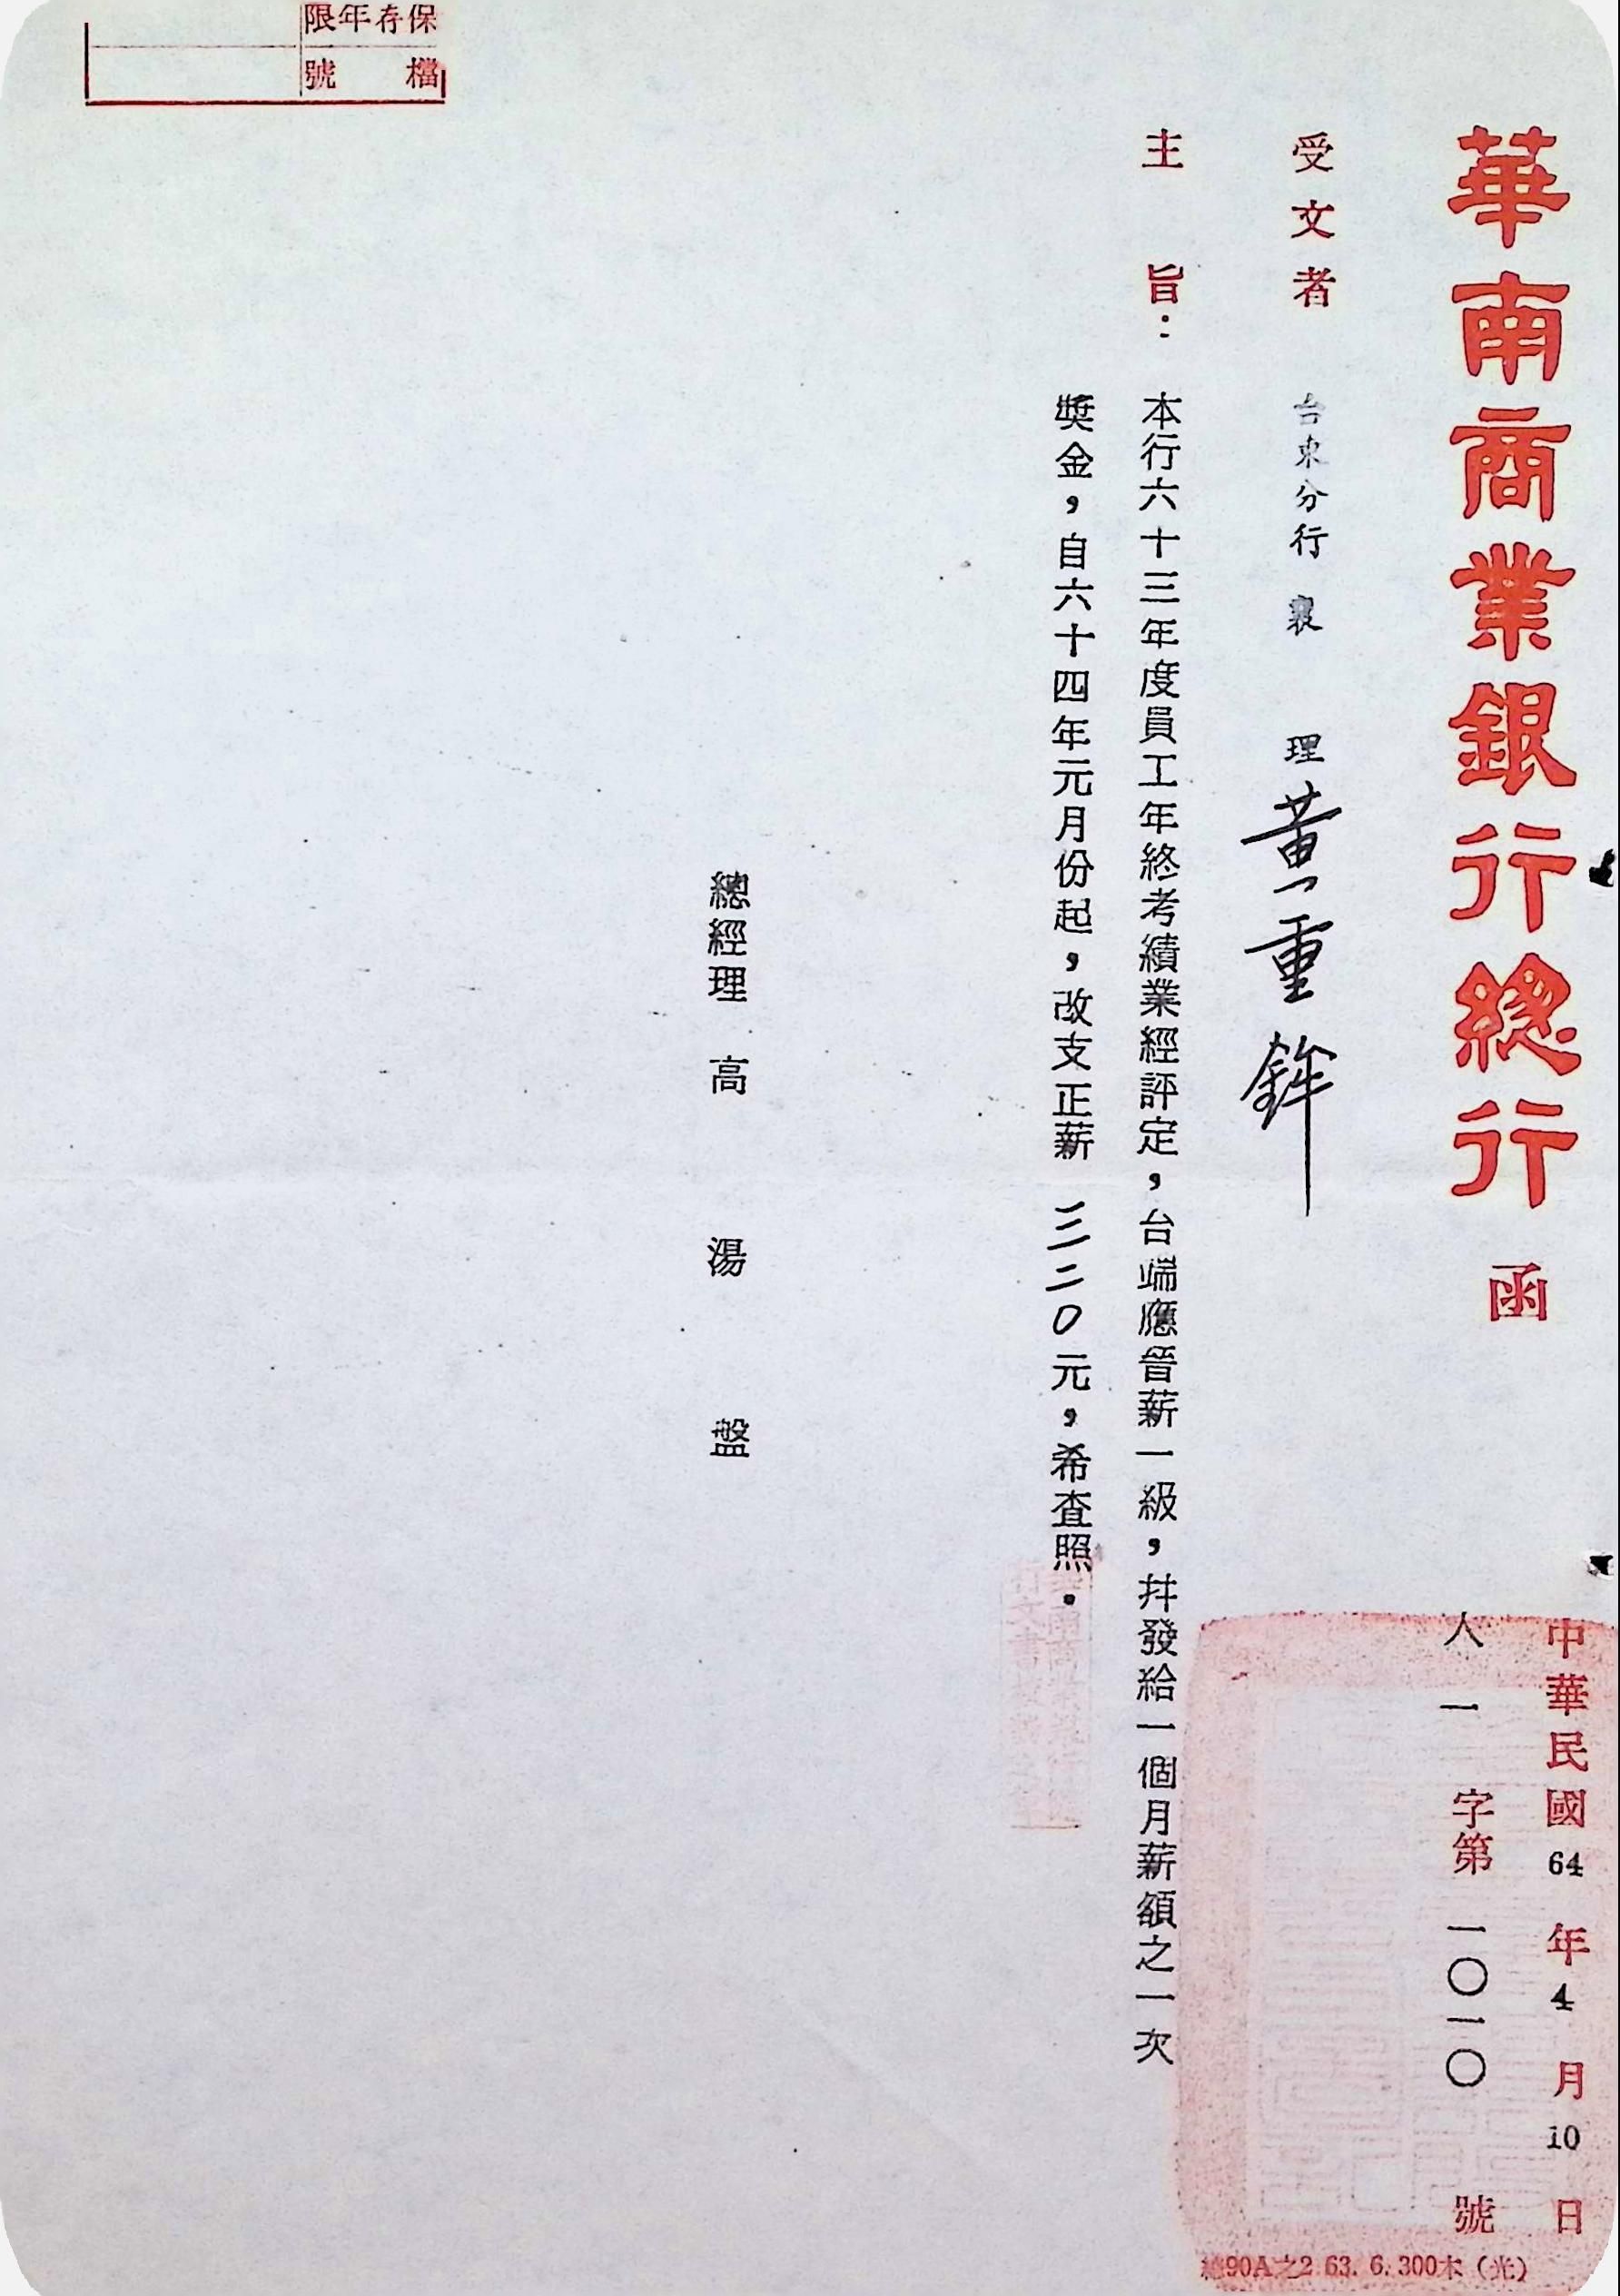 華南商業銀行總行 函
中華民國64年4月10日
人一字第一〇一〇號
受文者 台東分行 襄理 黃重鉾
主旨：本行六十三年度員工年終考績業經評定，台端應晉薪一級，幷發給一個月薪額之一次
奬金，自六十四年元月份起，改支正薪 三二〇元，希查照。
總經理 高湯盤
限年存保
號檔
總90A之2 63. 6. 300本（光）